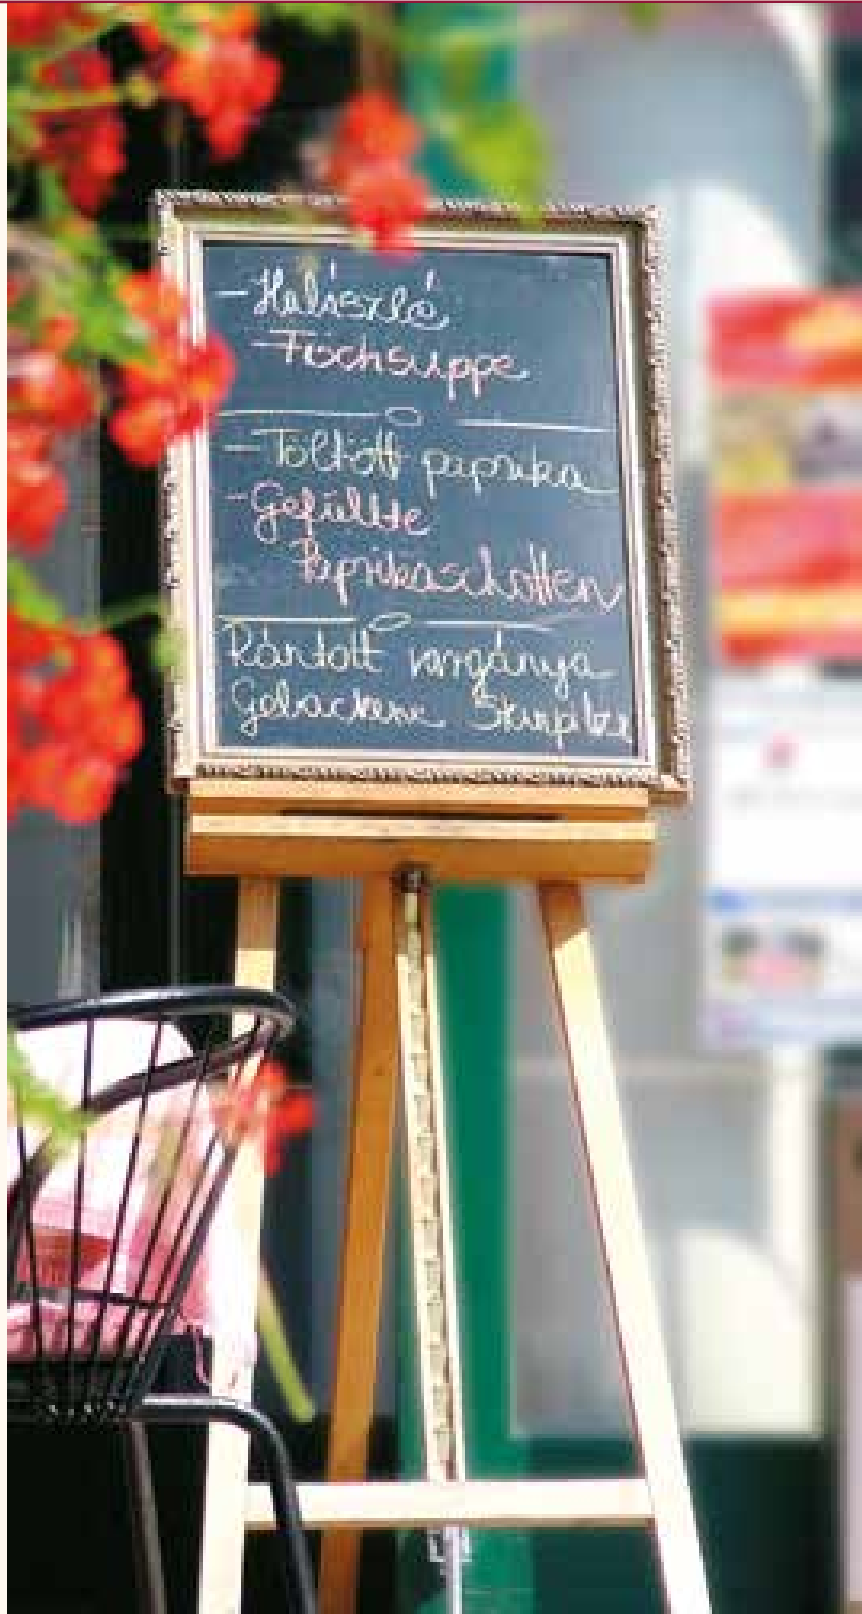 - Halászlé
- Fischsuppe
- Töltött paprika
- Gefüllte
Paprikaschotten
Rántott vargánya
Gebackene Steinpilze